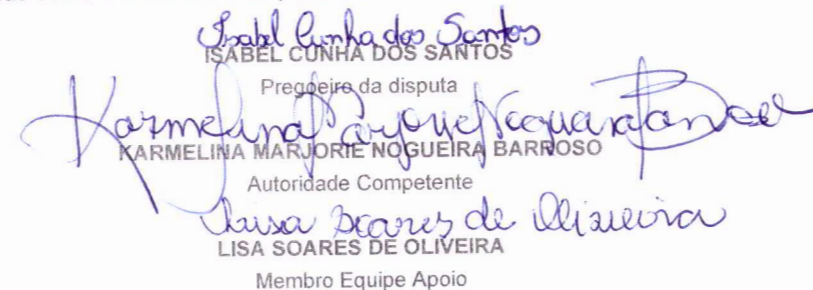 Isabel Cunha dos Santos
ISABEL CUNHA DOS SANTOS
Pregoeiro da disputa
Karmelina Marjorie Nogueira Barroso
KARMELINA MARJORIE NOGUEIRA BARROSO
Autoridade Competente
Soares de Oliveira
LISA SOARES DE OLIVEIRA
Membro Equipe Apoio